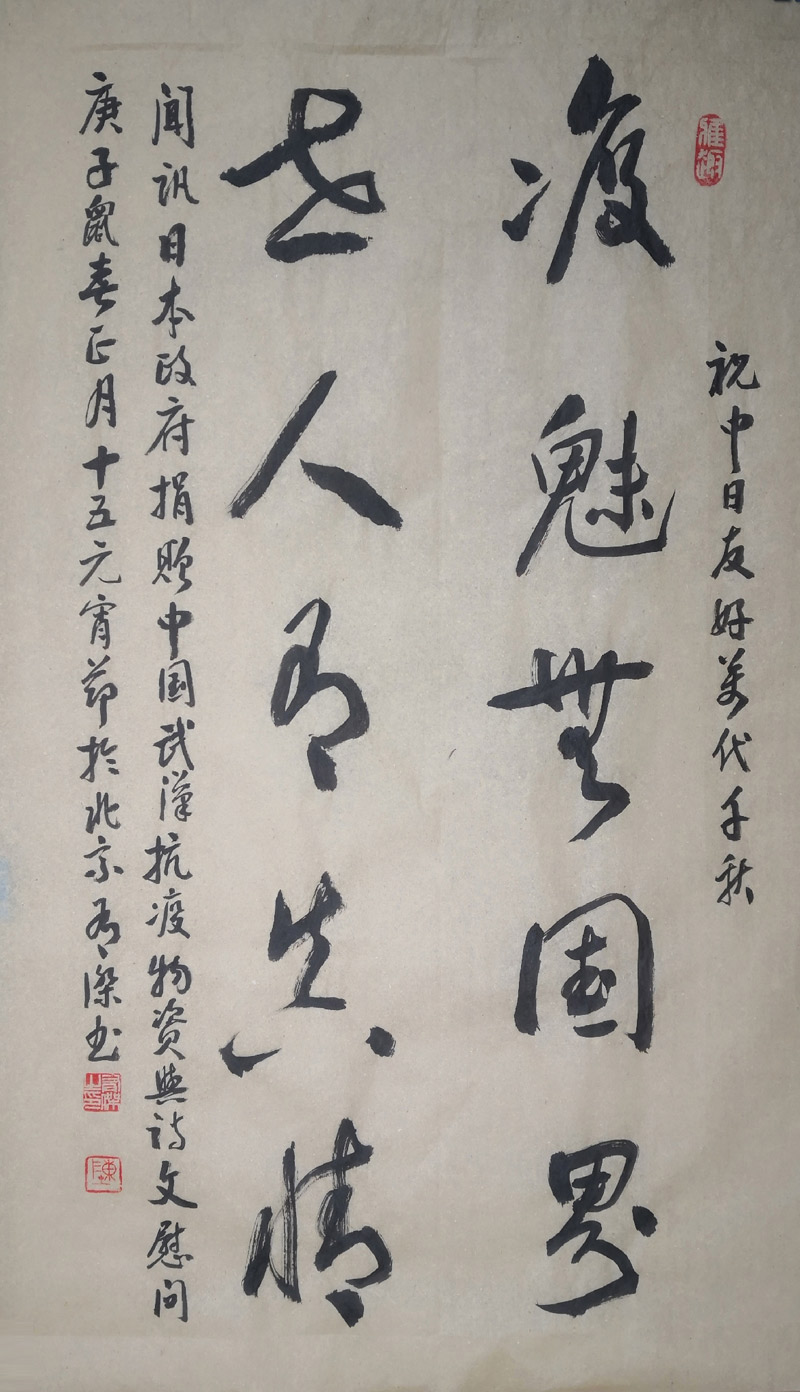 祝中日友好萬代千秋
疫魅無國界
世人有真情
聞訊日本政府捐贈中国武漢抗疫物資與詩文慰問
庚子鼠春正月十五元宵節於北京有傑书
陳